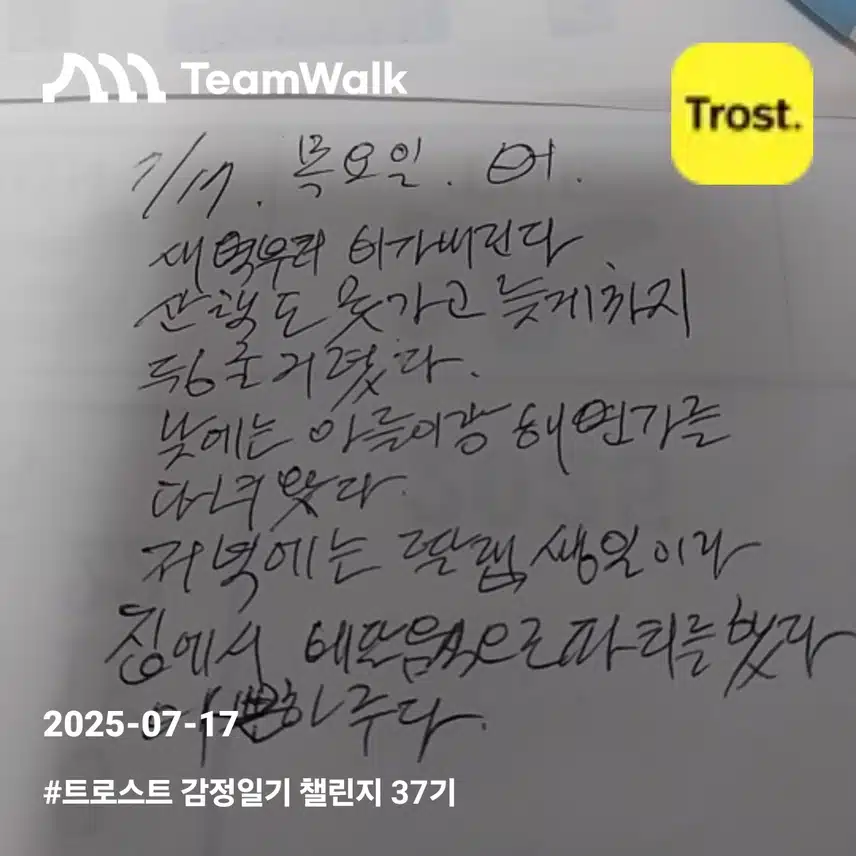 TeamWalk
Trost.
7/17. 목요일.
새벽부터 비가내린다
산책도 못가고 늦게까지
뒹굴거렸다.
낮에는 아들이랑 해변가를
다녀왔다.
저녁에는 딸램 생일이라
집에서 배달음식으로 파티를 했다
하루다.
2025-07-17
#트로스트 감정일기 챌린지 37기